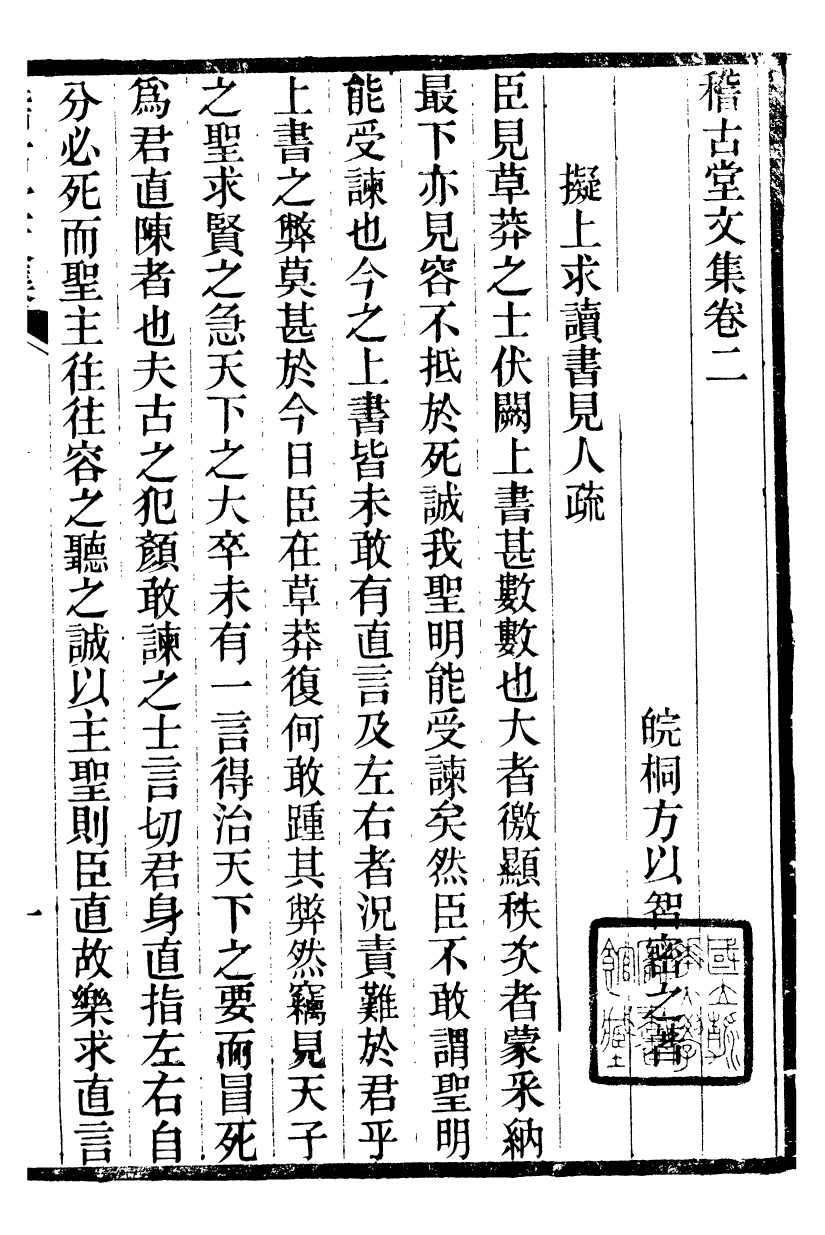 稽古堂文集卷二
皖桐方以智密之著
擬上求讀書見人疏
臣見草莽之士伏闕上書甚數數也大者徼顯秩次者蒙采納
最下亦見容不抵於死誠我聖明能受諫矣然臣不敢謂聖明
能受諫也今之上書皆未敢有直言及左右者況責難於君乎
上書之弊莫甚於今日臣在草莽復何敢踵其弊然竊見天子
之聖求賢之急天下之大卒未有一言得治天下之要而冒死
爲君直陳者也夫古之犯顏敢諫之士言切君身直指左右自
分必死而聖主往往容之聽之誠以主聖則臣直故樂求直言
一